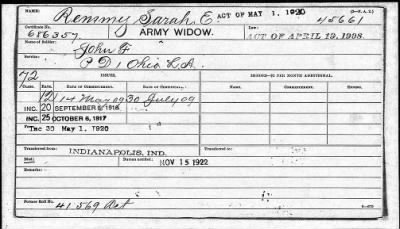 NAME: Remmy Sarah E. ACT OF MAY 1, 1920 45661
Certificate No. 686357. ARMY WIDOW. Law: ACT OF APRIL 19, 1908.
Name of Soldier: John F
Service: C D 1 Ohio L.A.
72 ISSUES.
CLASS. RATE. DATE OF COMMENCEMENT. DATE OF CERTIFICATE. RATE. DATE OF COMMENCEMENT. DATE OF CERTIFICATE.
12 14 May 09 30 July 09
INC. 20 SEPTEMBER 8, 1916
INC. 25 OCTOBER 6, 1917
Inc 30 May 1, 1920
Transferred from INDIANAPOLIS, IND. Transferred to
Died: NOV 15 1922
Remarks:
Former Roll No. 41569 Act